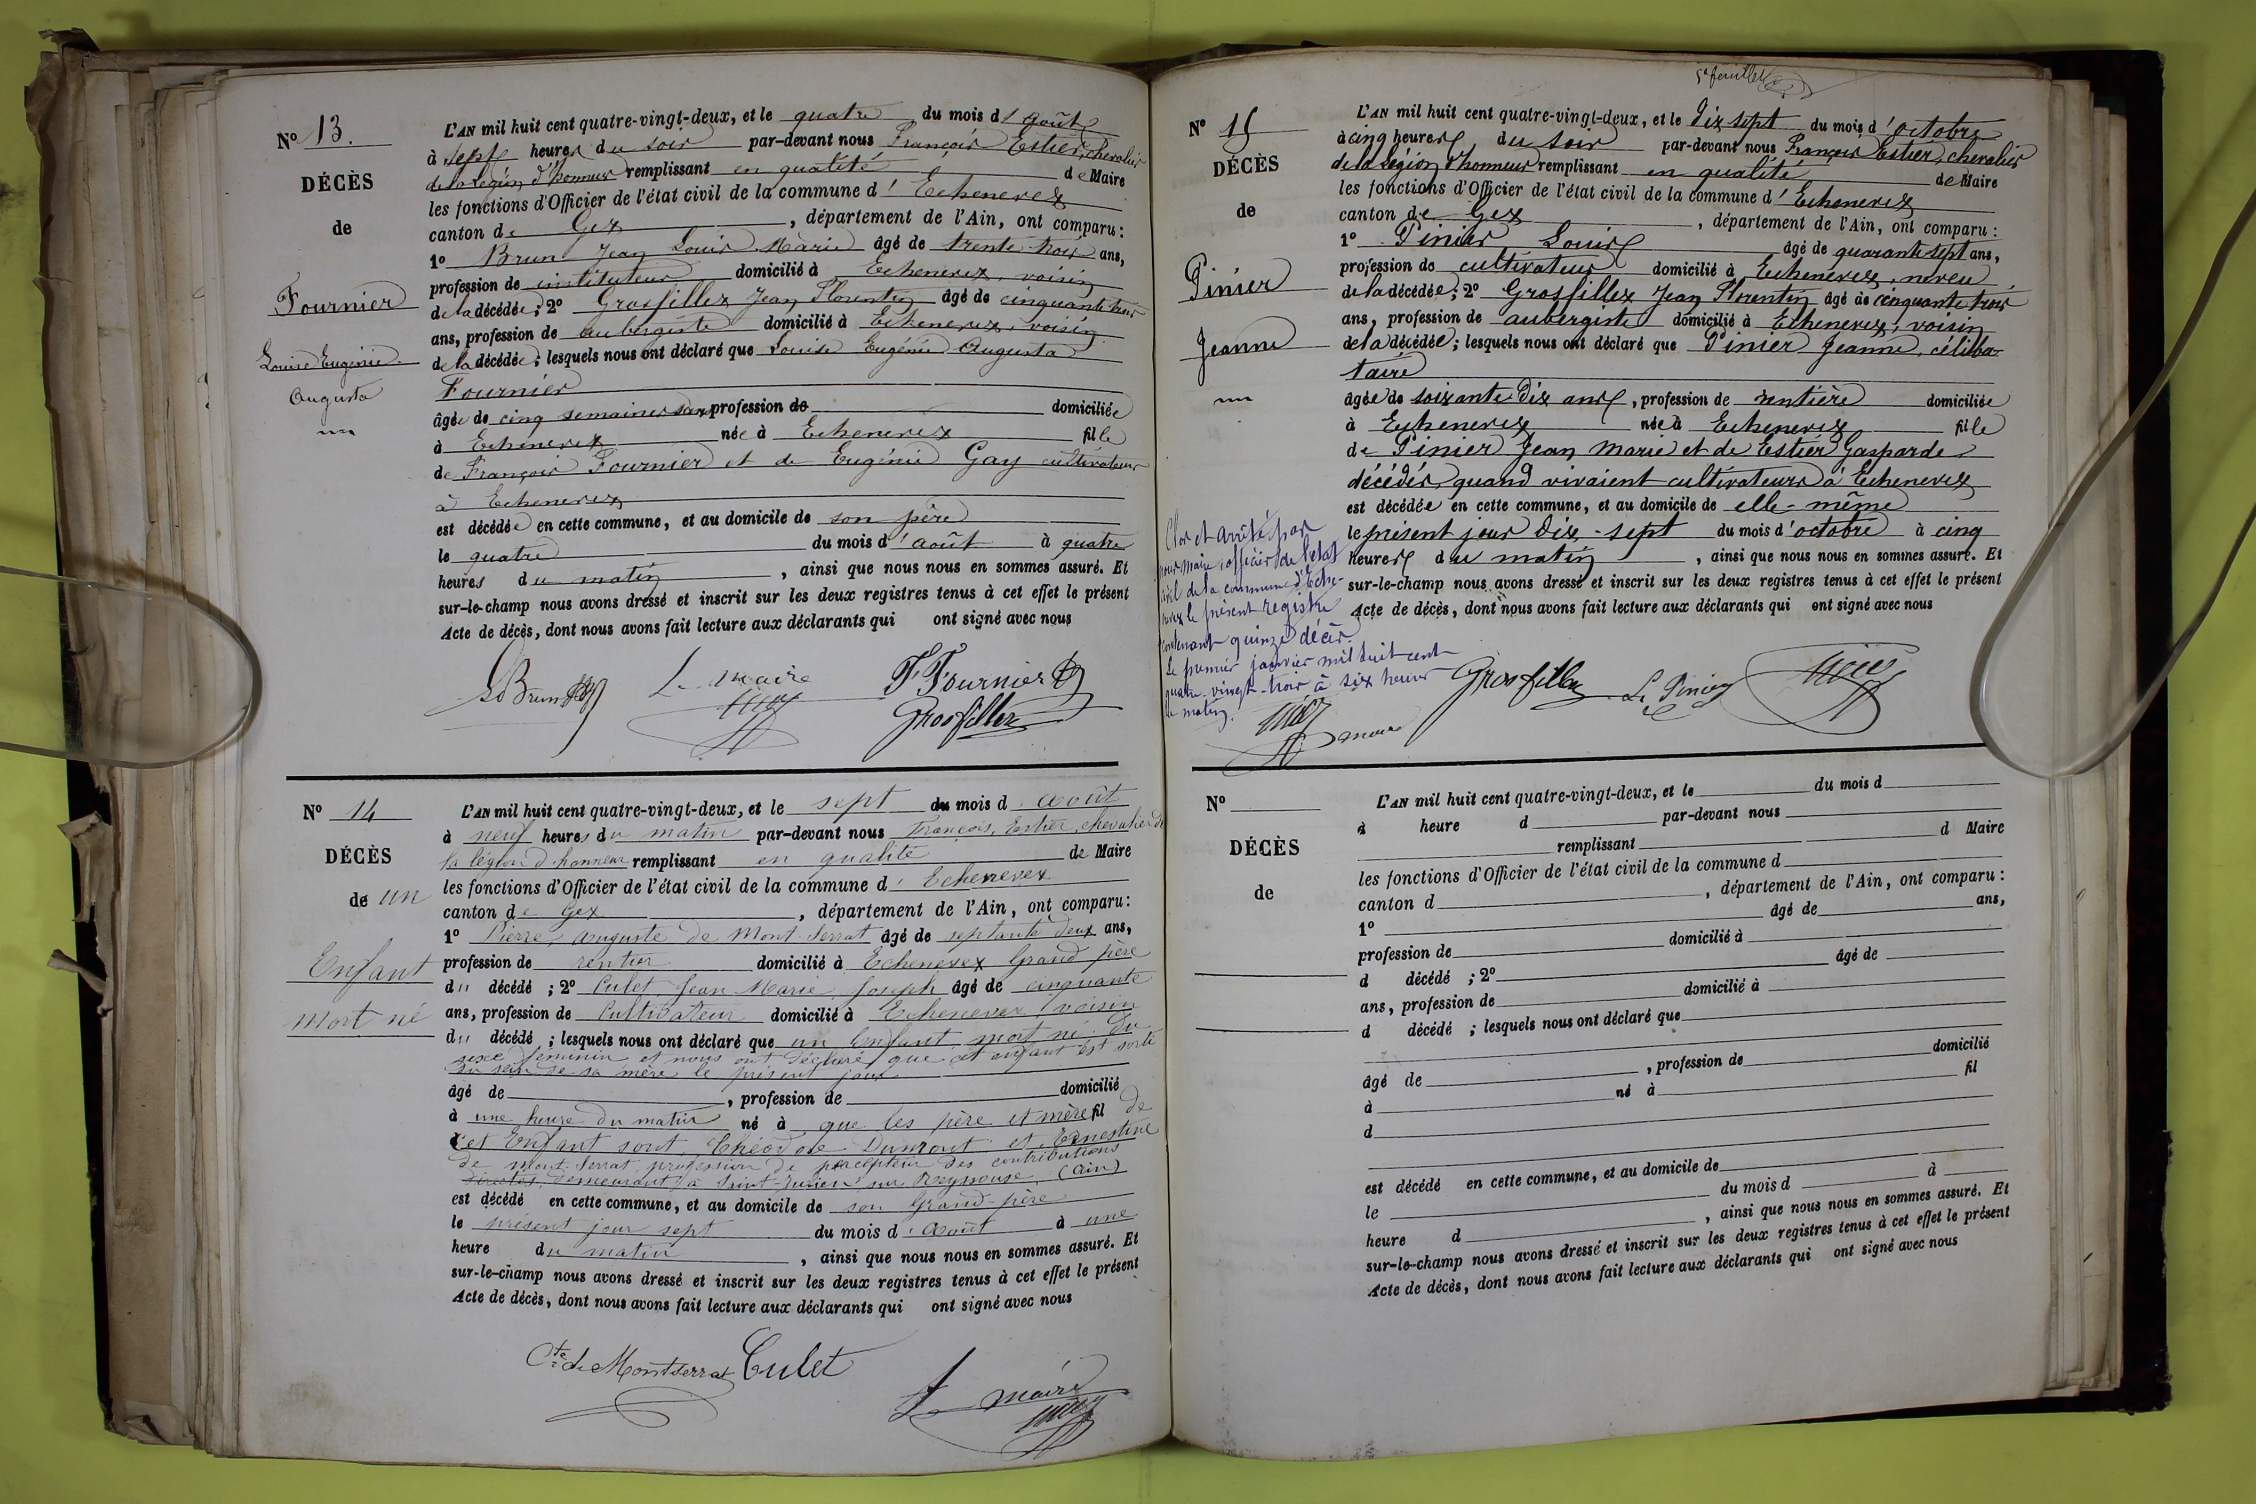 N° 13.
DÉCÈS
de
Fournier
Louise Eugénie
Augusta
L'AN mil huit cent quatre-vingt-deux, et le quatre du mois d'août
à sept heures du soir par-devant nous François Estier, chevalier
de la Légion d'honneur remplissant en qualité de Maire
les fonctions d'Officier de l'état civil de la commune d'Echenevex
canton de Gex, département de l'Ain, ont comparu:
1° Brun Jean Louis Marie âgé de trente trois ans,
profession de instituteur domicilié à Echenevex, voisin
de la décédée; 2° Grosfillex Jean Florentin âgé de cinquante trois
ans, profession de aubergiste domicilié à Echenevex, voisin
de la décédée; lesquels nous ont déclaré que Louise Eugénie Augusta
Fournier
âgée de cinq semaines sans profession de domiciliée
à Echenevex née à Echenevex fille
de François Fournier et de Eugénie Gay cultivateurs
à Echenevex
est décédée en cette commune, et au domicile de son père
le quatre du mois d'août à quatre
heures du matin, ainsi que nous nous en sommes assuré. Et
sur-le-champ nous avons dressé et inscrit sur les deux registres tenus à cet effet le présent
Acte de décès, dont nous avons fait lecture aux déclarants qui ont signé avec nous
Le maire F. Fournier
Brun Grosfillex
N° 14
DÉCÈS
de un
Enfant
mort né
L'AN mil huit cent quatre-vingt-deux, et le sept du mois d'août
à neuf heures du matin par-devant nous François Estier, chevalier de
la légion d'honneur remplissant en qualité de Maire
les fonctions d'Officier de l'état civil de la commune d'Echenevex
canton de Gex, département de l'Ain, ont comparu:
1° Pierre Auguste de Mont-Serrat âgé de septante deux ans,
profession de rentier domicilié à Echenevex Grand père
du décédé; 2° Culet Jean Marie Joseph âgé de cinquante
ans, profession de Cultivateur domicilié à Echenevex, voisin
du décédé; lesquels nous ont déclaré que un Enfant mort né du
sexe féminin et nous ont déclaré que cet enfant est sorti
du sein de sa mère le présent jour
âgé de, profession de domicilié
à une heure du matin né à que les père et mère fil de
cet Enfant sont Théodore Dumont et Ernestine
de Mont-Serrat profession de percepteur des contributions
directes, demeurant à Saint-Julien sur Reyssouze (Ain)
est décédé en cette commune, et au domicile de son Grand-père
le présent jour sept du mois d'août à une
heure du matin, ainsi que nous nous en sommes assuré. Et
sur-le-champ nous avons dressé et inscrit sur les deux registres tenus à cet effet le présent
Acte de décès, dont nous avons fait lecture aux déclarants qui ont signé avec nous
Cte de Montserrat Culet
Le maire
5e feuillet
N° 15
DÉCÈS
de
Pinier
Jeanne
L'AN mil huit cent quatre-vingt-deux, et le Dix sept du mois d'octobre
à cinq heures du soir par-devant nous François Estier, chevalier
de la Légion d'honneur remplissant en qualité de Maire
les fonctions d'Officier de l'état civil de la commune d'Echenevex
canton de Gex, département de l'Ain, ont comparu:
1° Pinier Louis âgé de quarante sept ans,
profession de cultivateur domicilié à Echenevex, neveu
de la décédée; 2° Grosfillex Jean Florentin âgé de cinquante trois
ans, profession de aubergiste domicilié à Echenevex, voisin
de la décédée; lesquels nous ont déclaré que Pinier Jeanne, céliba-
taire
âgée de soixante Dix ans, profession de rentière domiciliée
à Echenevex née à Echenevex fille
de Pinier Jean Marie et de Estier Gasparde
décédés, quand vivaient cultivateurs à Echenevex
est décédée en cette commune, et au domicile de elle-même
le présent jour Dix-sept du mois d'octobre à cinq
heures du matin, ainsi que nous nous en sommes assuré. Et
sur-le-champ nous avons dressé et inscrit sur les deux registres tenus à cet effet le présent
Acte de décès, dont nous avons fait lecture aux déclarants qui ont signé avec nous
Grosfillex Ls Pinier
Clos et arrêté par
nous Maire, officier de l'état
civil de la commune d'Eche-
nevex le présent registre
contenant quinze décès.
Le premier janvier mil huit cent
quatre-vingt-trois à six heures
du matin.
maire
N°
DÉCÈS
de
L'AN mil huit cent quatre-vingt-deux, et le du mois d
à heure d par-devant nous
remplissant d Maire
les fonctions d'Officier de l'état civil de la commune d
canton d, département de l'Ain, ont comparu:
1° âgé de ans,
profession de domicilié à
d décédé; 2° âgé de
ans, profession de domicilié à
d décédé; lesquels nous ont déclaré que
âgé de, profession de domicilié
à né à fil
d
est décédé en cette commune, et au domicile de
le du mois d à
heure d, ainsi que nous nous en sommes assuré. Et
sur-le-champ nous avons dressé et inscrit sur les deux registres tenus à cet effet le présent
Acte de décès, dont nous avons fait lecture aux déclarants qui ont signé avec nous